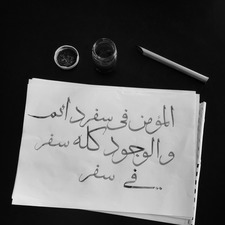 المؤمن في سفر دائم
والوجود كله سفر
في سفر